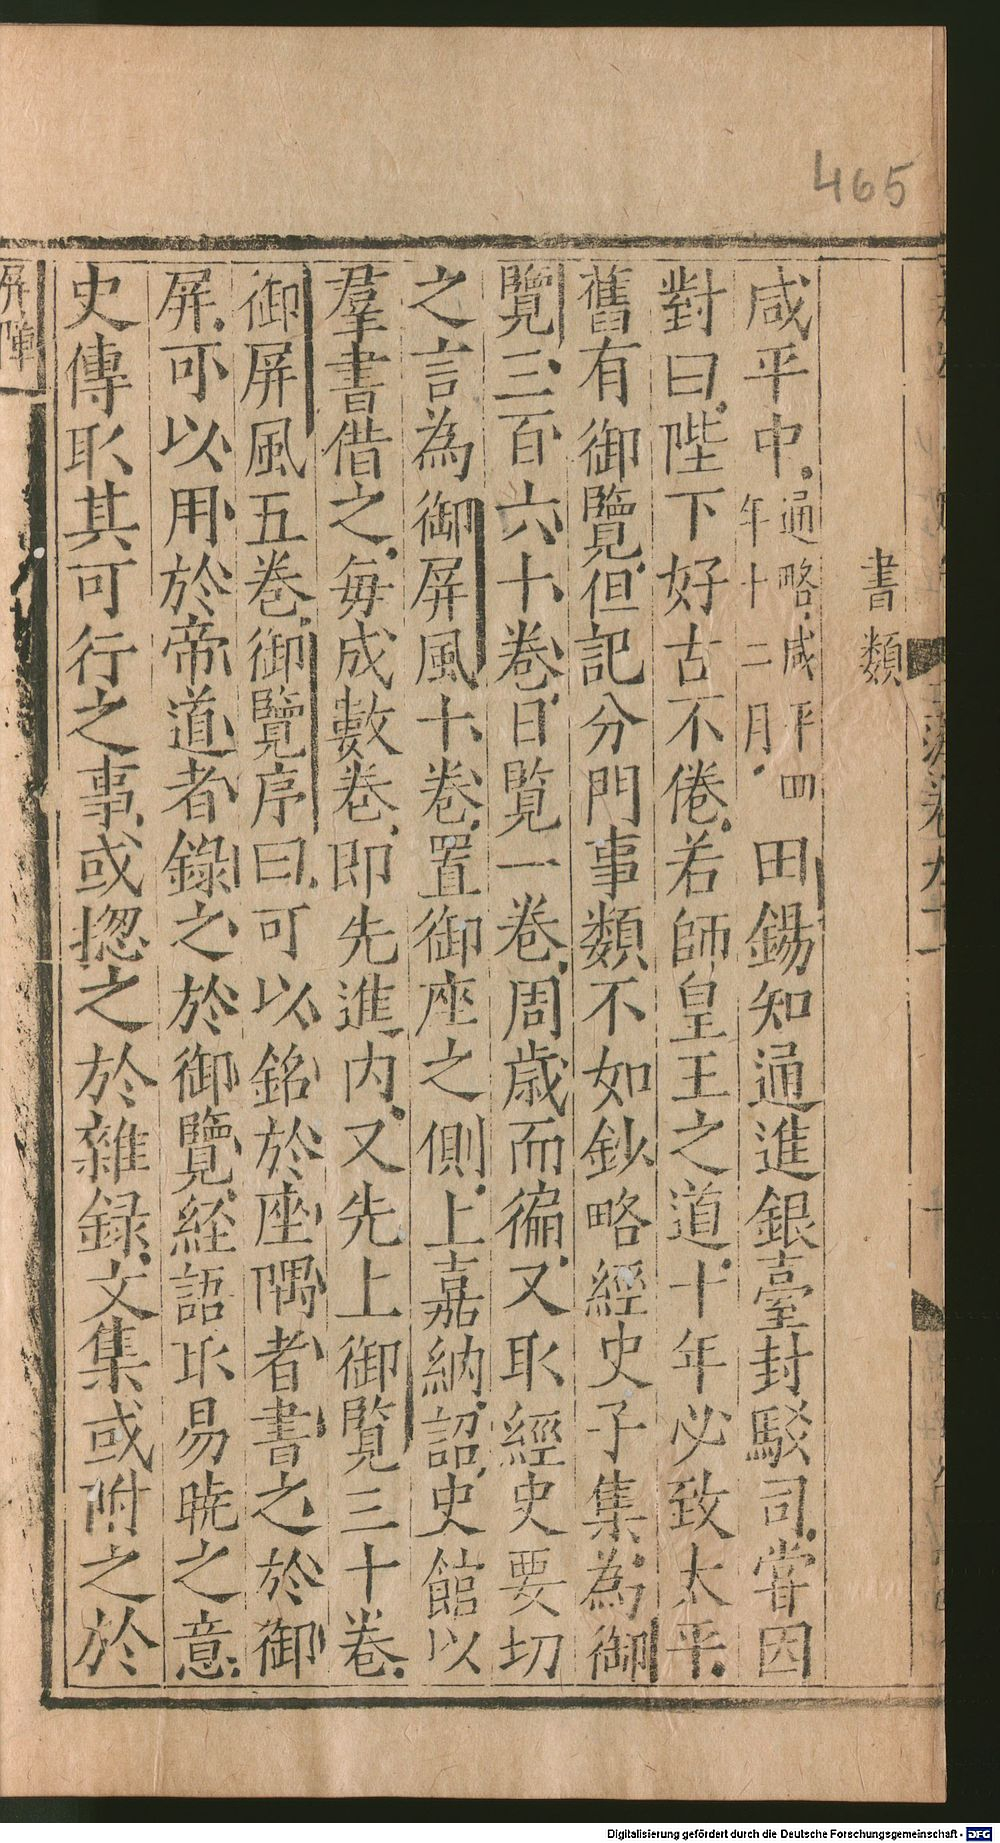 465
書類
咸平中通略咸平四年十二月田錫知通進銀臺封駁司甞因
對曰陛下好古不倦若師皇王之道十年必致太平
舊有御覽但記分門事類不如鈔略經史子集為御
覽三百六十卷日覧一卷周歳而徧又取經史要切
之言為御屏風十卷置御座之側上嘉納詔史館以
羣書借之毎成數卷即先進內又先上御覧三十卷
御屏風五卷御覽序曰可以銘於座隅者書之於御
屏可以用於帝道者錄之於御覽経語取易暁之意
史傳取其可行之事或揔之於雜録文集或附之於
屏障
Digitalisierung gefördert durch die Deutsche Forschungsgemeinschaft - DFG